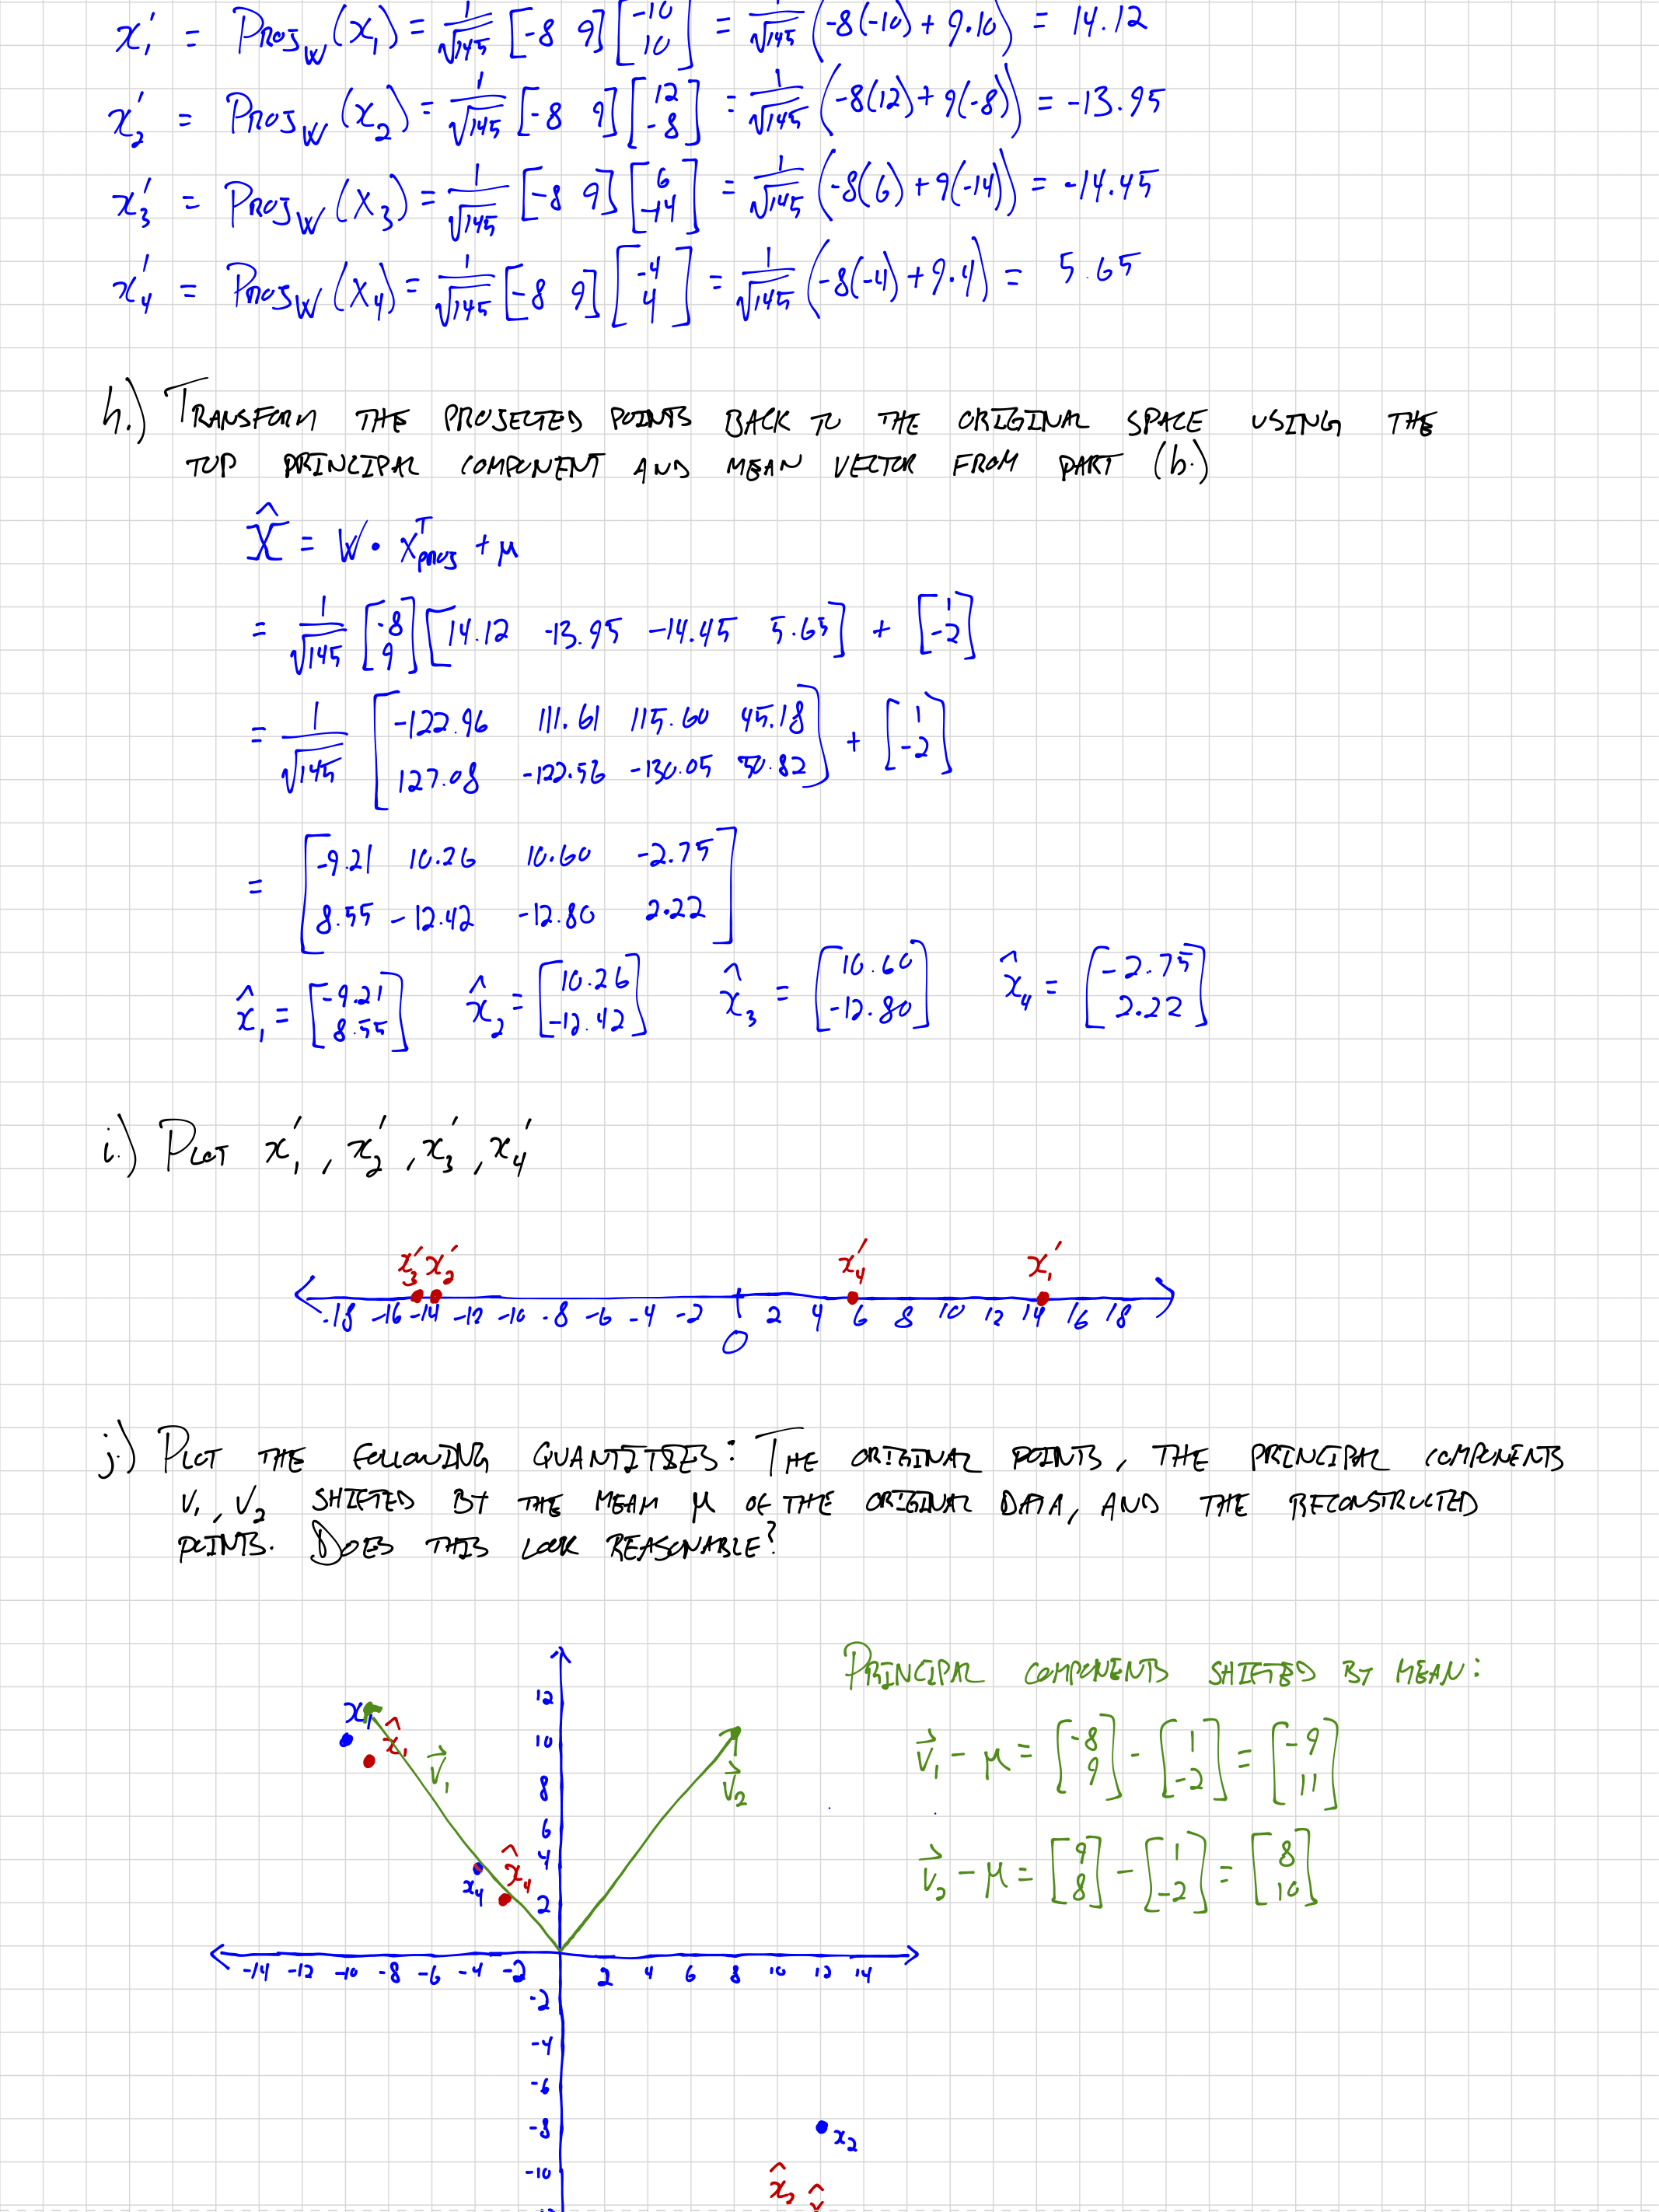 x₁' = Proj_W(x₁) = 1/√145 [-8 9] [-10 10] = 1/√145 (-8(-10) + 9·10) = 14.12
x₂' = Proj_W(x₂) = 1/√145 [-8 9] [12 -8] = 1/√145 (-8(12) + 9(-8)) = -13.95
x₃' = Proj_W(x₃) = 1/√145 [-8 9] [6 -14] = 1/√145 (-8(6) + 9(-14)) = -14.45
x₄' = Proj_W(x₄) = 1/√145 [-8 9] [-4 4] = 1/√145 (-8(-4) + 9·4) = 5.65
h.) TRANSFORM THE PROJECTED POINTS BACK TO THE ORIGINAL SPACE USING THE
TOP PRINCIPAL COMPONENT AND MEAN VECTOR FROM PART (b.)
X̂ = W · X_proj^T + μ
= 1/√145 [-8 9] [14.12 -13.95 -14.45 5.65] + [1 -2]
= 1/√145 [-122.96 111.61 115.60 45.18
127.08 -122.56 -130.05 50.82] + [1 -2]
= [-9.21 10.26 10.60 -2.75
8.55 -12.42 -12.80 2.22]
x̂₁ = [-9.21 8.55] x̂₂ = [10.26 -12.42] x̂₃ = [10.60 -12.80] x̂₄ = [-2.75 2.22]
i.) PLOT x₁', x₂', x₃', x₄'
x₃' x₂' x₄' x₁'
-18 -16 -14 -12 -10 -8 -6 -4 -2 0 2 4 6 8 10 12 14 16 18
j.) PLOT THE FOLLOWING QUANTITIES: THE ORIGINAL POINTS, THE PRINCIPAL COMPONENTS
v₁, v₂ SHIFTED BY THE MEAN μ OF THE ORIGINAL DATA, AND THE RECONSTRUCTED
POINTS. DOES THIS LOOK REASONABLE?
PRINCIPAL COMPONENTS SHIFTED BY MEAN:
v⃗₁ - μ = [-8 9] - [1 -2] = [-9 11]
v⃗₂ - μ = [9 8] - [1 -2] = [8 10]
12
x₁
x̂₁
10
v⃗₁
8
v⃗₂
6
4
x̂₄
x₄
2
-14 -12 -10 -8 -6 -4 -2 2 4 6 8 10 12 14
-2
-4
-6
-8
x₂
-10